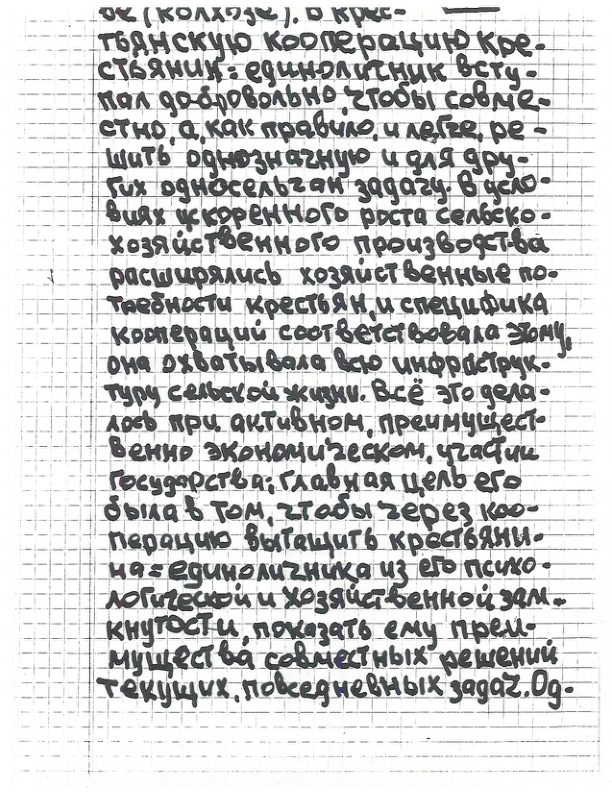 ве (колхозе). В крес-
тьянскую кооперацию кре-
стьянин=единоличник всту-
пал добровольно, чтобы совме-
стно, а, как правило, и легче, ре-
шить однозначную и для дру-
гих односельчан задачу. В усло-
виях ускоренного роста сельско-
хозяйственного производства
расширялись хозяйственные по-
требности крестьян, и специфика
коопераций соответствовала этому,
она охватывала всю инфраструк-
туру сельской жизни. Всё это дела-
лось при активном, преимущест-
венно экономическом, участии
государства; главная цель его
была в том, чтобы через коо-
перацию вытащить крестьяни-
на=единоличника из его психо-
логической и хозяйственной зам-
кнутости, показать ему преи-
мущества совместных решений
текущих, повседневных задач. Од-